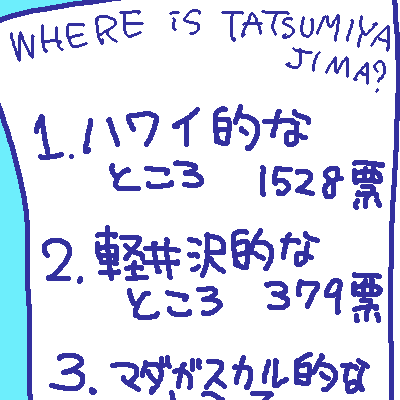 WHERE iS TATSUMIYA
JIMA?
1.ハワイ的な
ところ 1528票
2.軽井沢的な
ところ 379票
3.マダガスカル的な